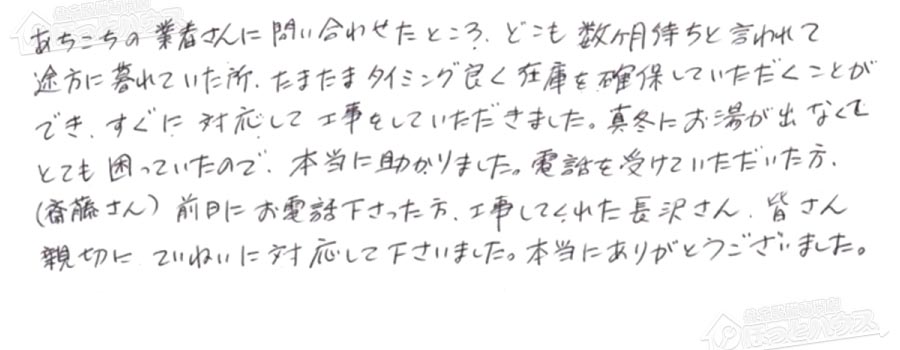 あちこちの業者さんに問い合わせたところ、どこも数ヶ月待ちと言われて
途方に暮れていた所、たまたまタイミング良く在庫を確保していただくことが
でき、すぐに対応して工事をしていただきました。真冬にお湯が出なくて
とても困っていたので、本当に助かりました。電話を受けていただいた方、
(斎藤さん) 前日にお電話下さった方、工事してくれた長沢さん、皆さん
親切にていねいに対応して下さいました。本当にありがとうございました。
ほっとハウス